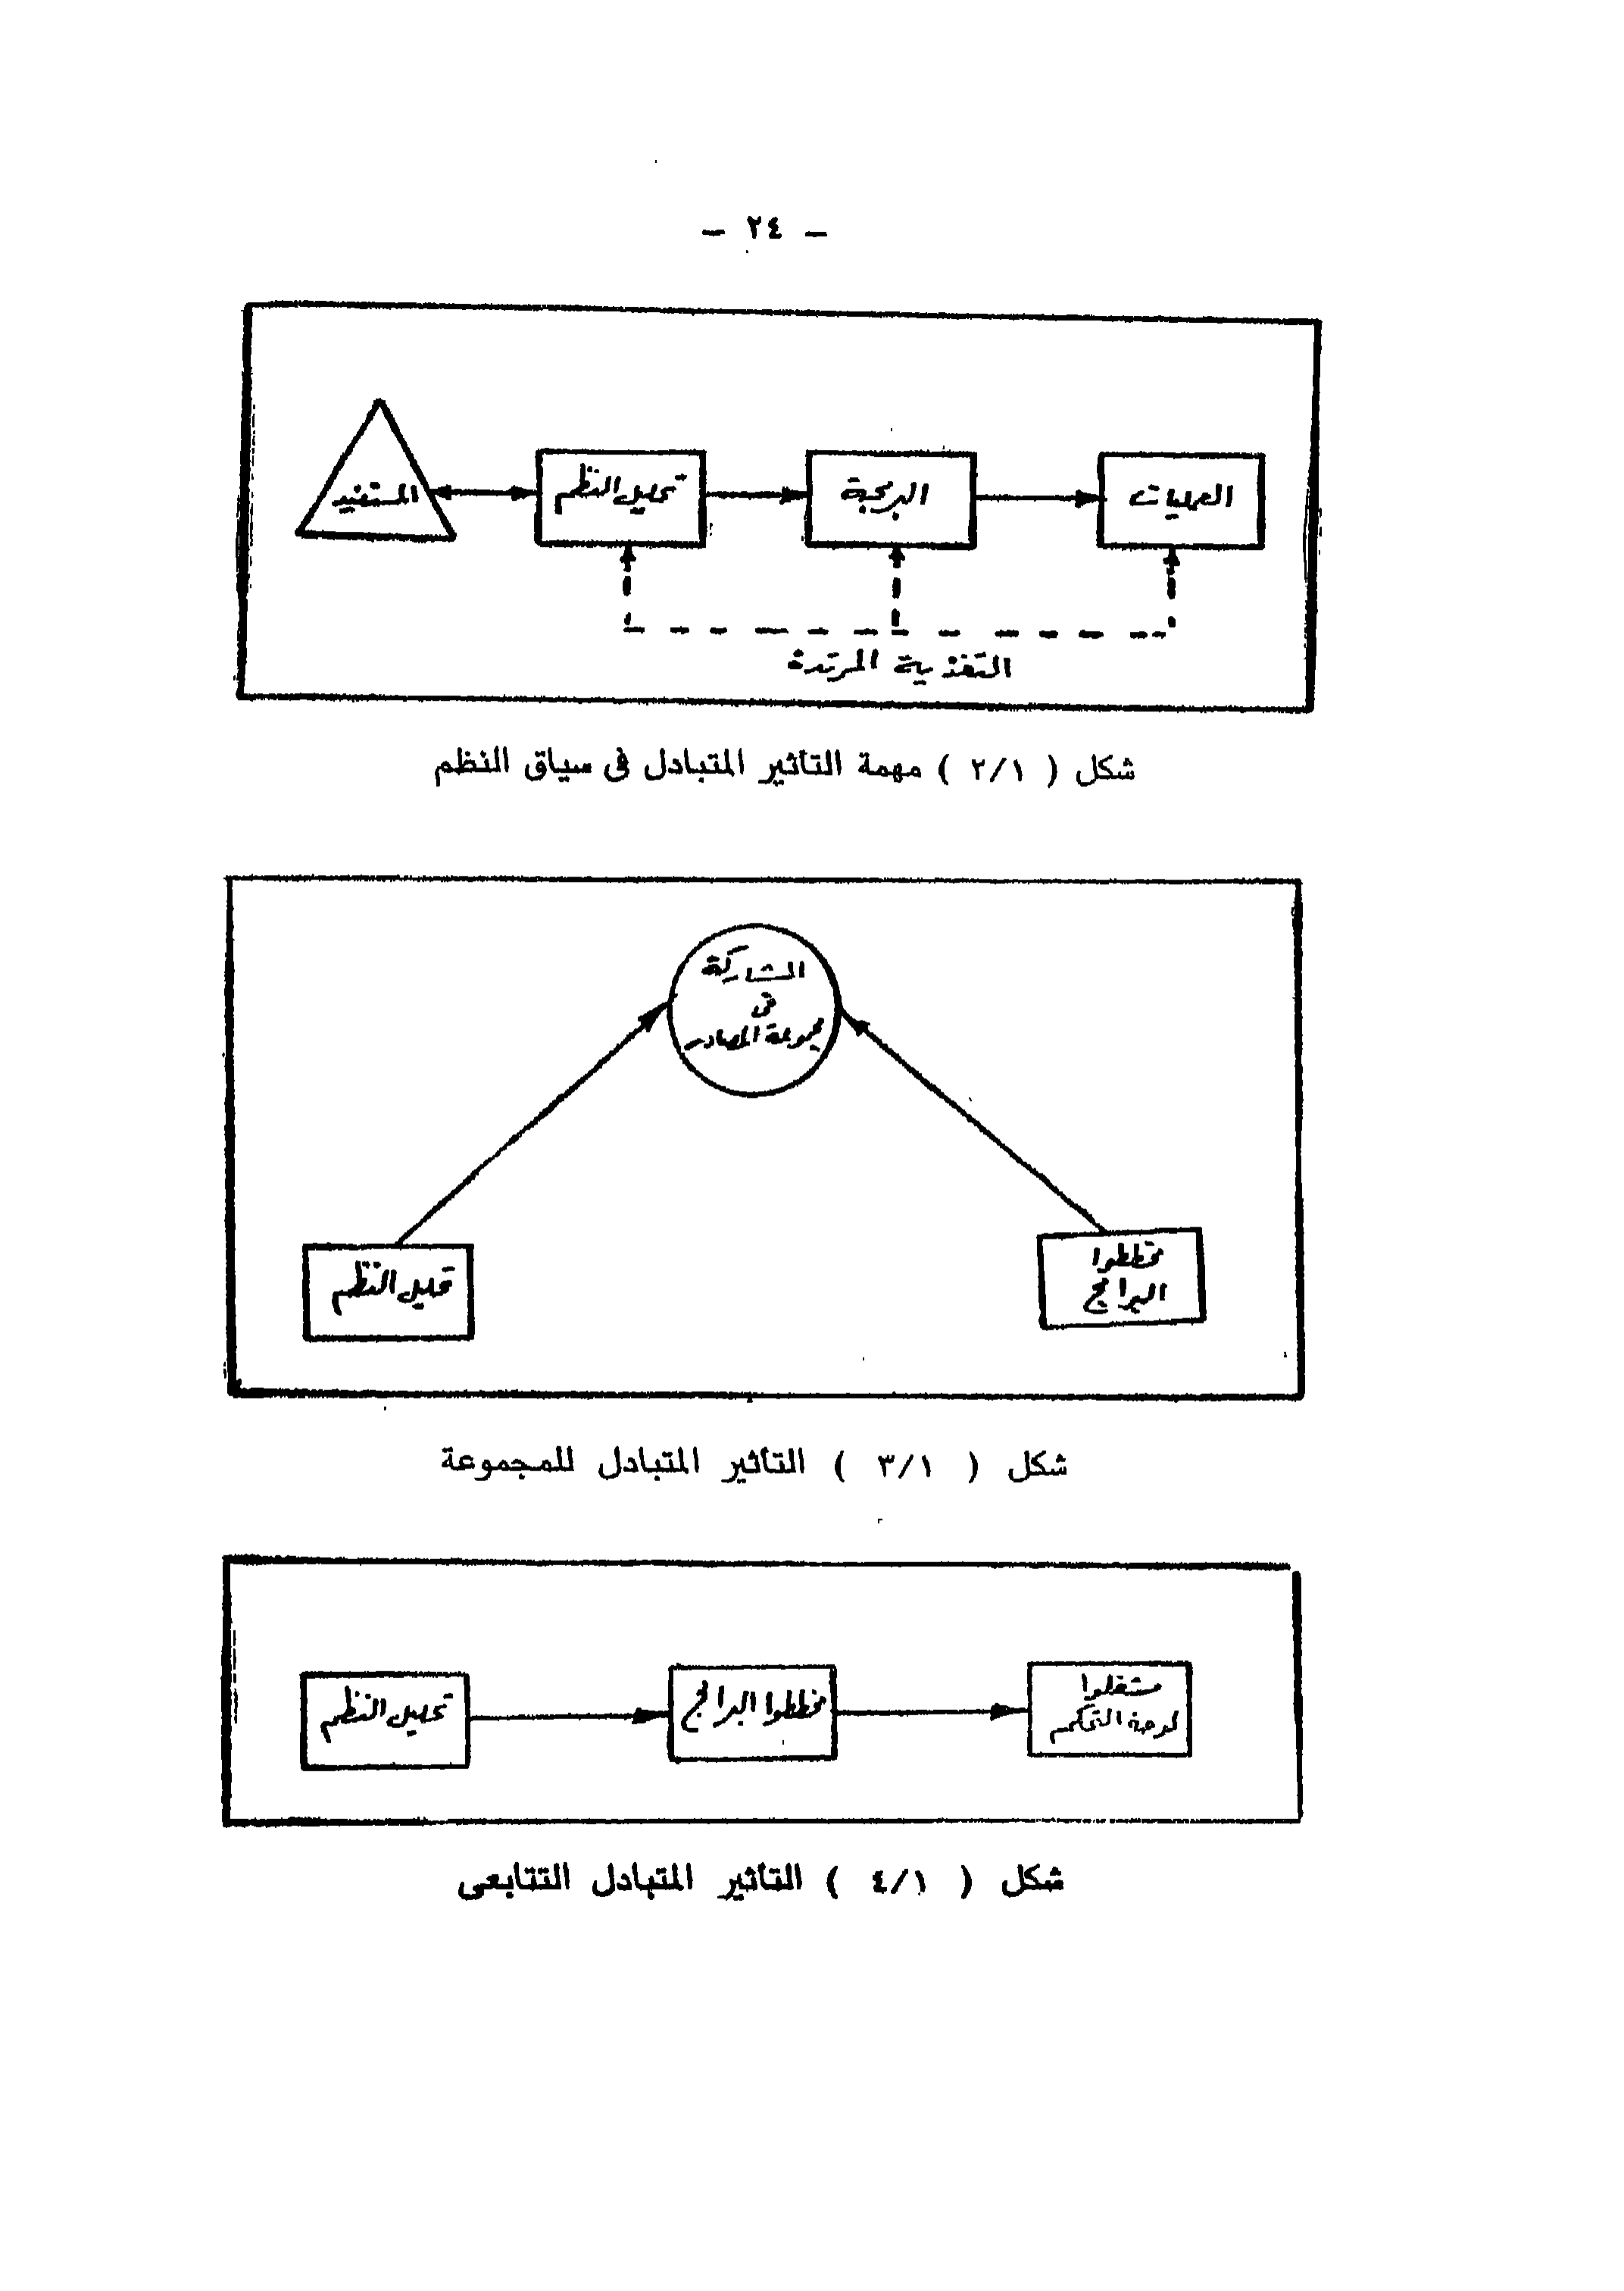 – ٢٤ –
المستفيد
تحليل النظم
البرمجة
العمليات
التغذية المرتدة
شكل ( ٢/١ ) مهمة التأثير المتبادل فى سياق النظم
المشاركة
فى
مجموعة المصادر
تحليل النظم
مخططوا
البرامج
شكل ( ٣/١ ) التأثير المتبادل للمجموعة
تحليل النظم
مخططوا البرامج
مشغلوا
لوحة التحكم
شكل ( ٤/١ ) التأثير المتبادل التتابعى